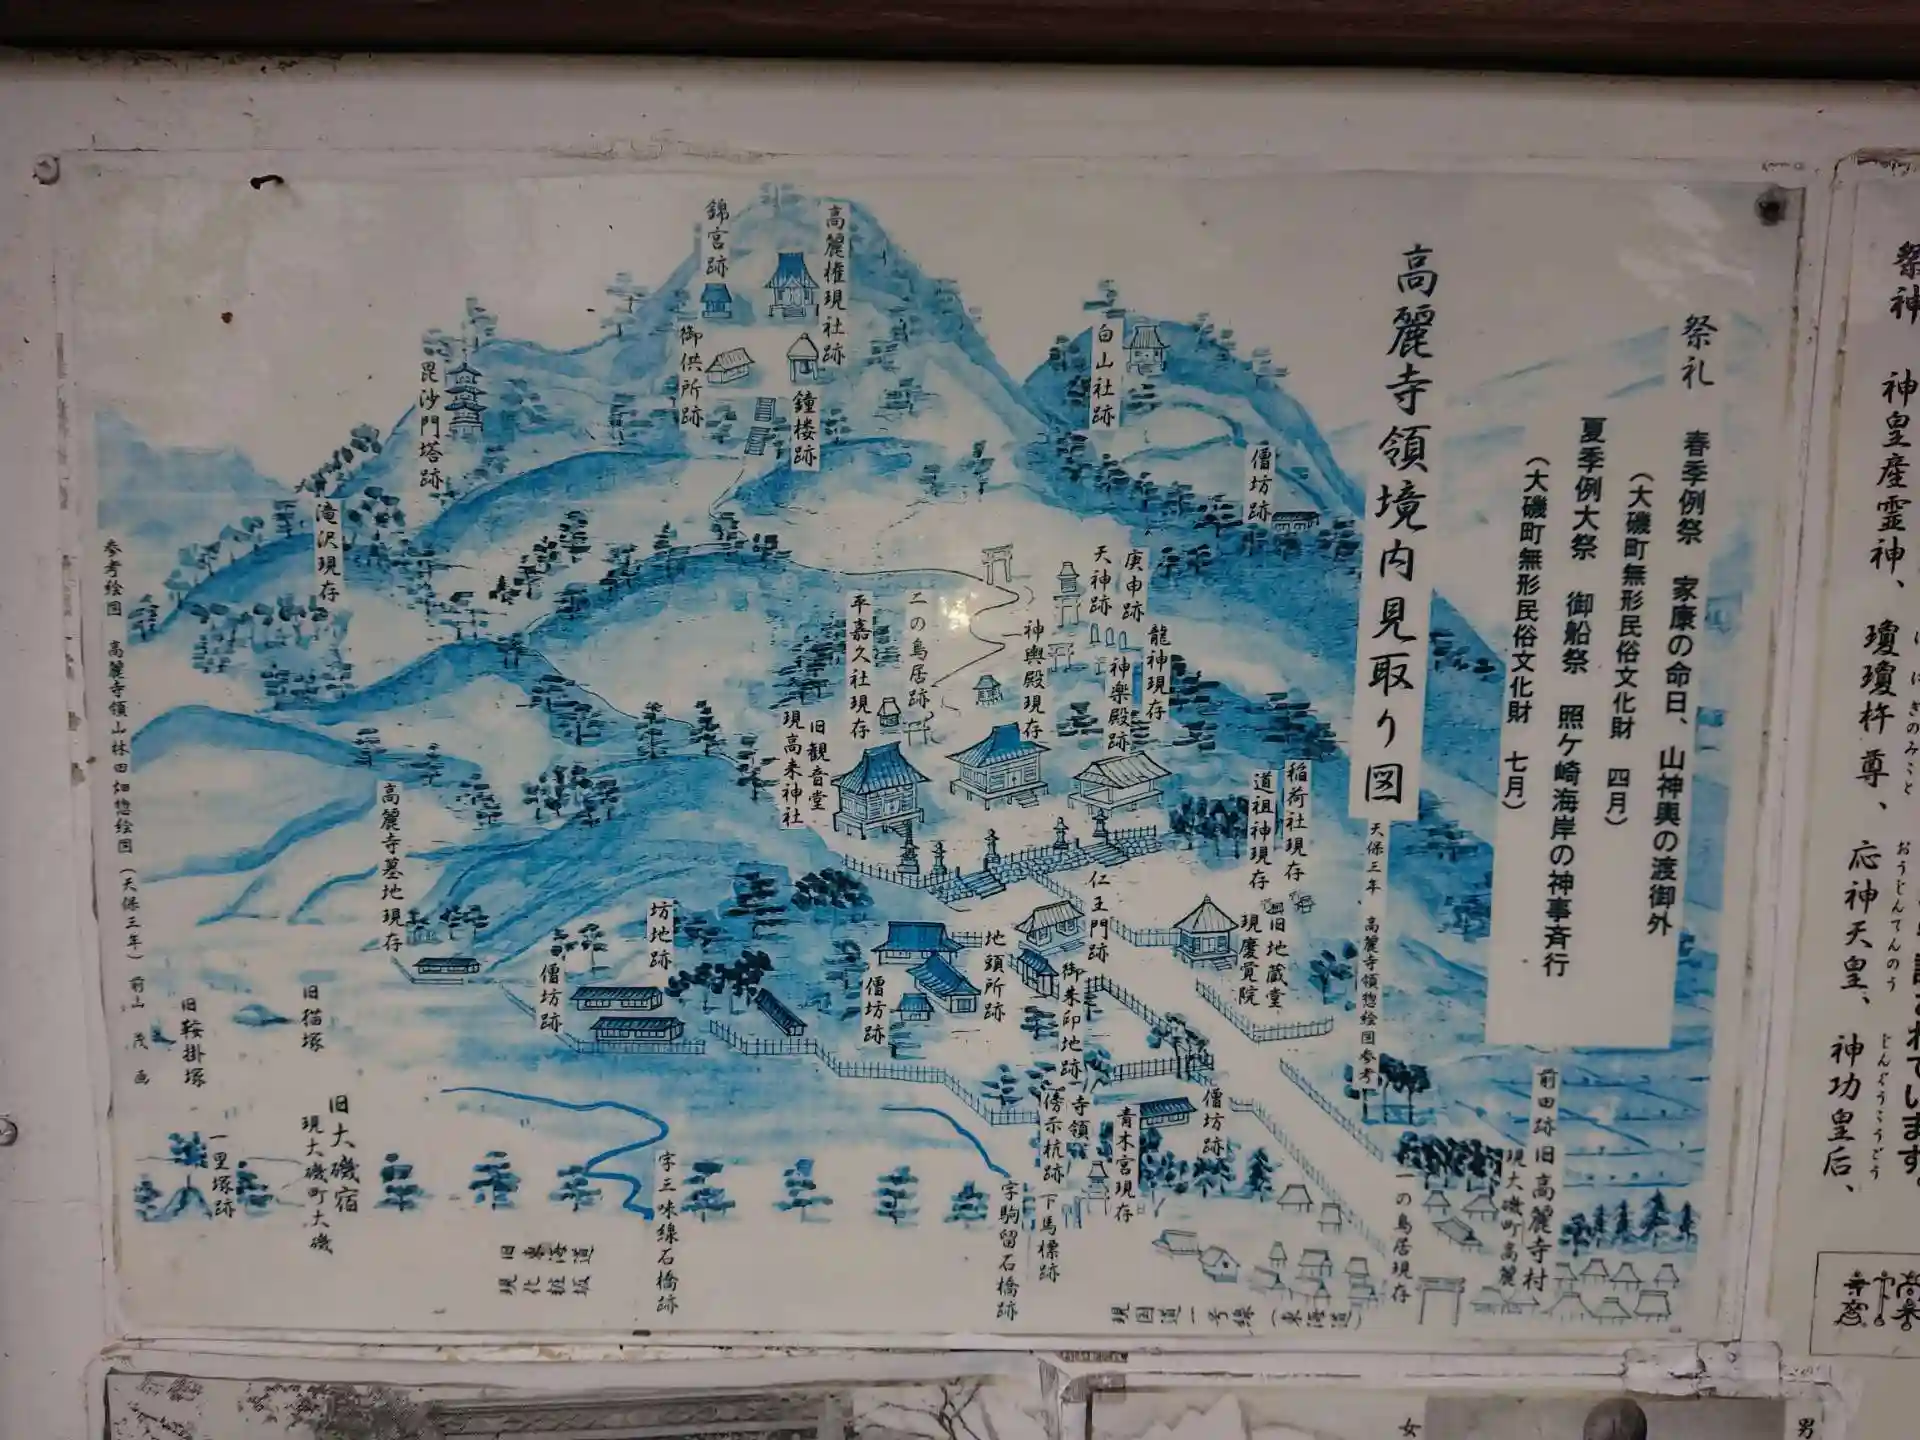 祭神 神皇産霊神、瓊瓊杵尊、応神天皇、神功皇后、
ぎのみこと
おうじんてんのう
じんぐうこうごう
されています。
祭礼 春季例祭 家康の命日、山神輿の渡御外
(大磯町無形民俗文化財 四月)
夏季例大祭 御船祭 照ケ崎海岸の神事斉行
(大磯町無形民俗文化財 七月)
高麗寺領境内見取り図
天保三年 高麗寺領惣絵図参考
高麗権現社跡
錦宮跡
御供所跡
鐘楼跡
毘沙門塔跡
白山社跡
僧坊跡
滝沢現存
庚申跡
天神跡
龍神現存
神楽殿跡
神輿殿現存
二の鳥居跡
平嘉久社現存
旧観音堂
現高来神社
稲荷社現存
道祖神現存
高麗寺墓地現存
仁王門跡
旧地蔵堂
現慶覚院
坊地跡
僧坊跡
地頭所跡
僧坊跡
御朱印地跡
寺領
傍示杭跡
僧坊跡
青木宮現存
下馬標跡
字駒留石橋跡
字三味線石橋跡
前田跡
旧高麗寺村
現大磯町高麗
一の鳥居現存
現国道一号線(東海道)
旧東海道
現化粧坂
旧猫塚
旧鞍掛塚
旧大磯宿
現大磯町大磯
一里塚跡
参考絵図 高麗寺領山林田畑惣絵図(天保三年) 前山 茂 画
女
男